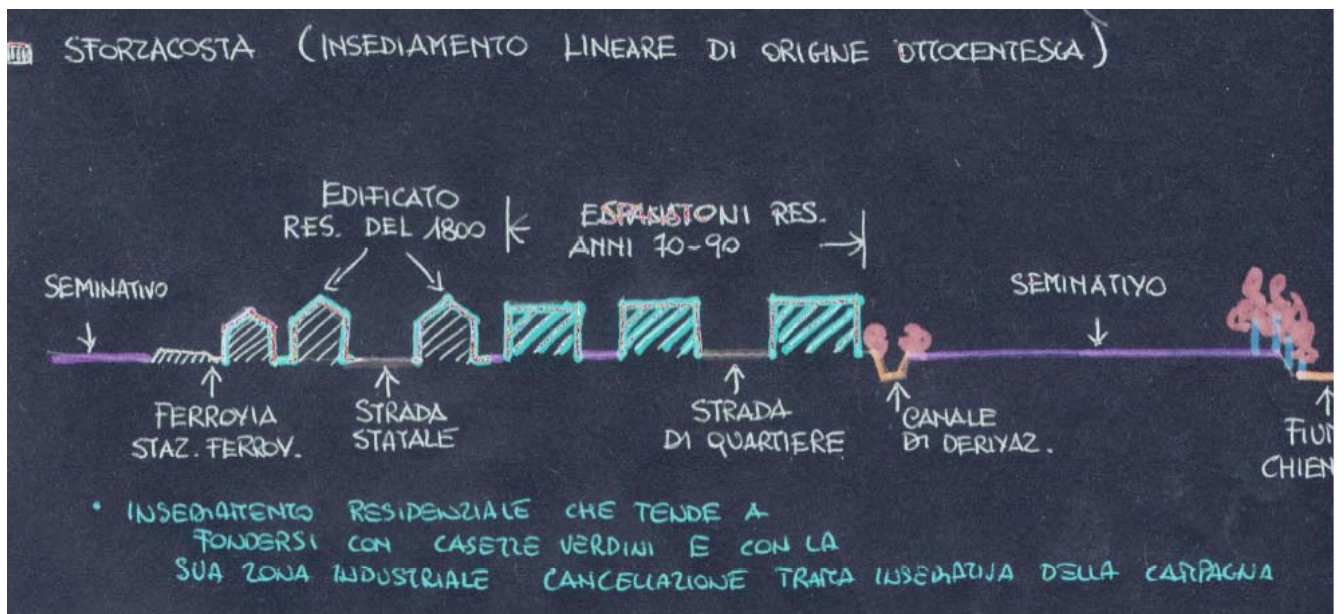 SFORZACOSTA (INSEDIAMENTO LINEARE DI ORIGINE OTTOCENTESCA)
EDIFICATO
RES. DEL 1800
RES.
ANNI 70-90
SEMINATIVO
SEMINATIVO
FERROVIA
STAZ. FERROV.
STRADA
STATALE
STRADA
DI QUARTIERE
CANALE
DI DERIVAZ.
FIUM
CHIEN
• INSEDIAMENTO RESIDENZIALE CHE TENDE A
FONDERSI CON CASETTE VERDINI E CON LA
SUA ZONA INDUSTRIALE CANCELLAZIONE TRAMA INSEDIATIVA DELLA CAMPAGNA